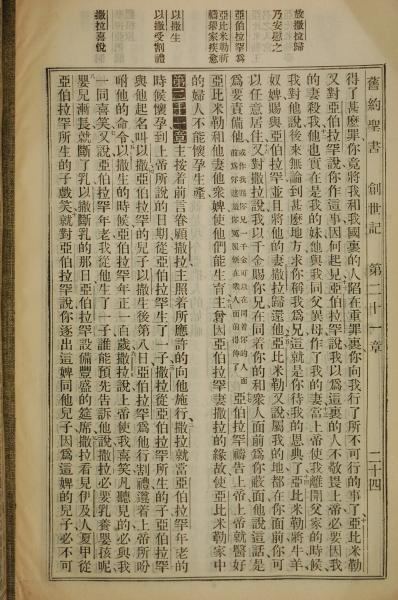 舊約聖書 創世記 第二十一章 二十四
放撒拉歸
乃安慰之
亞伯拉罕爲
亞比米勒祈
禱舉家疾愈
以撒生
以撒受割禮
撒拉喜悅
得了甚麼罪你竟將我和我國裏的人陷在重罪裏你向我行了所不可行的事了亞比米勒
又對亞伯拉罕說你作這事因何起見亞伯拉罕說我以爲這裏的人不敬畏上帝必要因我
的妻殺我他也實在是我的妹他與我同父異母作了我的妻當上帝使我離開父家的時候
我對他說後來無論到甚麼地方求你稱我爲兄這就是你待我的恩典了亞比米勒將牛羊
奴婢賜與亞伯拉罕並且將他的妻撒拉歸還他亞比米勒又說屬我的地都在你面前你可
以任意居住又對撒拉說我以千金賜你兄在同着你的和衆人面前爲你蔽面他說這話是
爲要責備他 或作我賜你兄一千金可以在同着你的人面前爲你遮羞你冤在衆人面前得伸了 亞伯拉罕禱告上帝上帝就醫好
亞比米勒和他妻他衆婢使他們能生育主曾因亞伯拉罕妻撒拉的緣故使亞比米勒家中
的婦人不能懷孕生產
第二十一章主按着前言眷顧撒拉主照着所應許的向他施行撒拉就當亞伯拉罕年老的
時候懷孕到上帝所說的日期從亞伯拉罕生了一子撒拉從亞伯拉罕所生的子亞伯拉罕
與他起名叫以撒亞伯拉罕的兒子以撒生後第八日亞伯拉罕爲他行割禮遵着上帝所吩
咐他的命令以撒生的時候亞伯拉罕年正一百歲撒拉說上帝使我喜笑凡聽見的必與我
一同喜笑又說亞伯拉罕年老我從他生了一子誰能預先告訴他說撒拉必要乳養嬰孩呢
嬰兒漸長就斷了乳以撒斷乳的那日亞伯拉罕設備豐盛的筵席撒拉看見伊及人夏甲從
亞伯拉罕所生的子戲笑就對亞伯拉罕說你逐出這婢同他兒子因爲這婢的兒子必不可